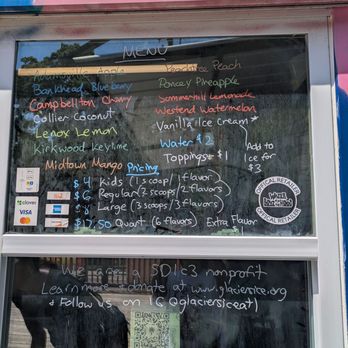 MENU
Adamsville Apple
Peachtree Peach
Bankhead Blueberry
Poncey Pineapple
Campbellton Cherry
Summerhill Lemonade
Collier Coconut
Westend Watermelon
Lenox Lemon
Vanilla Ice Cream *
Kirkwood Keylime
Water $2
Add to Ice for $3
Midtown Mango
Pricing
Toppings $1
$4 Kids (1 scoop/1 flavor)
$6 Regular (2 scoops/2 flavors)
$8 Large (3 scoops/3 flavors)
$17.50 Quart (6 flavors)
Extra Flavor
clover
VISA
OFFICIAL RETAILER
OFFICIAL RETAILER
We are a 501c3 nonprofit
Learn more + donate at www.glaciersice.org
+ Follow us on IG @glaciersiceatl)